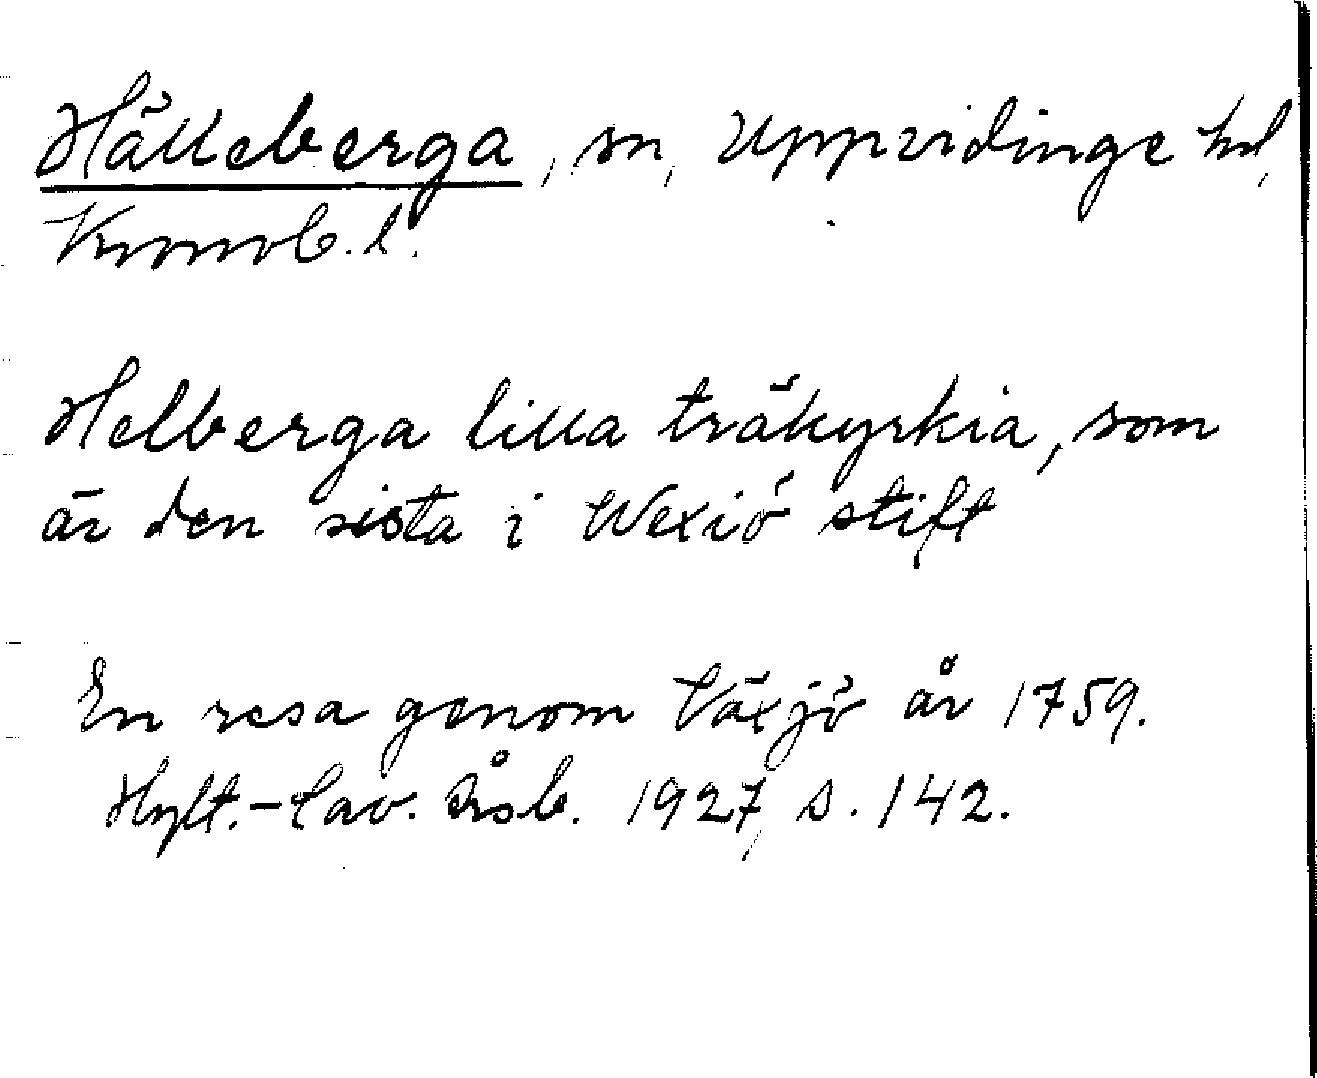 Hälleberga, sn, Uppvidinge hd,
Kronob. l.
Helberga lilla träkyrkia, som
är den sista i Wexiö stift
En resa genom Växjö år 1759.
Hylt.-Cav. Årsb. 1927, s. 142.